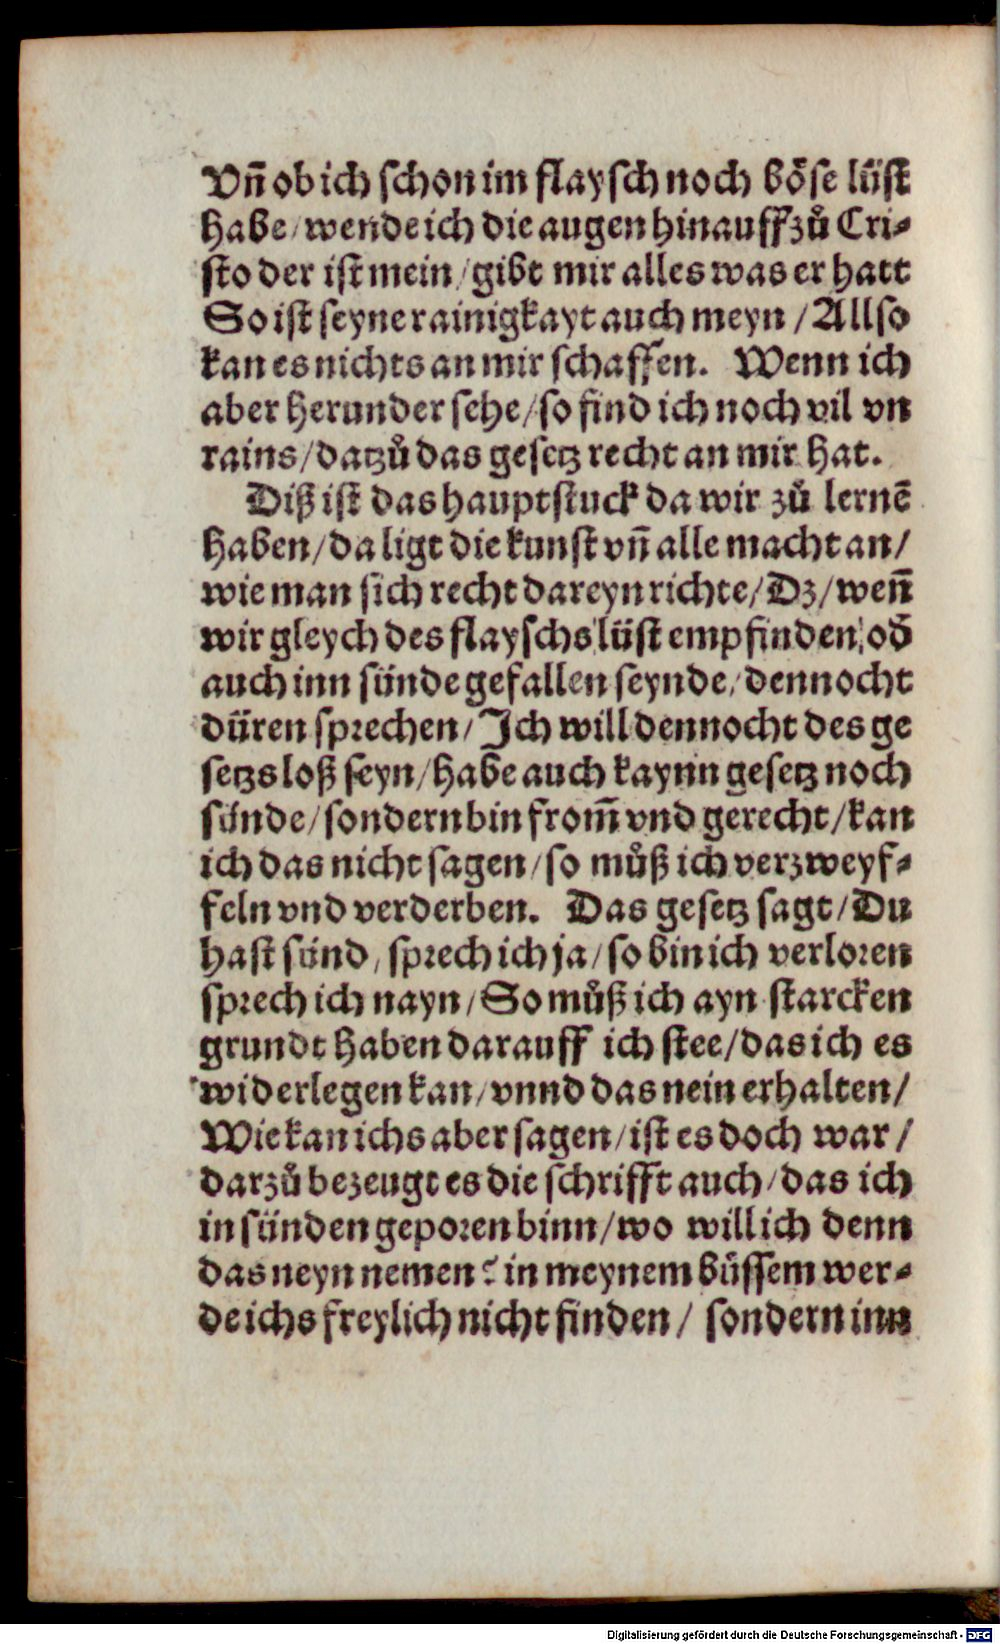 Vñ ob ich schon im flaysch noch böse lüst
habe / wende ich die augen hinauff zů Cri⸗
sto der ist mein / gibt mir alles was er hatt
So ist seyne rainigkayt auch meyn / Allso
kan es nichts an mir schaffen. Wenn ich
aber herunder sehe / so find ich noch vil vn
rains / datzů das gesetz recht an mir hat.
Diß ist das hauptstuck da wir zů lernē
haben / da ligt die kunst vñ alle macht an /
wie man sich recht dareyn richte / Dz / weñ
wir gleych des flayschs lüst empfinden / oď
auch inn sünde gefallen seynde / dennocht
düren sprechen / Ich will dennocht des ge
setzs loß seyn / habe auch kaynn gesetz noch
sünde / sondern bin from̃ vnd gerecht / kan
ich das nicht sagen / so můß ich verzweyf⸗
feln vnd verderben. Das gesetz sagt / Du
hast sünd / sprech ich ja / so bin ich verloren
sprech ich nayn / So můß ich ayn starcken
grundt haben darauff ich stee / das ich es
widerlegen kan / vnnd das nein erhalten /
Wie kan ichs aber sagen / ist es doch war /
darzů bezeugt es die schrifft auch / das ich
in sünden geporen binn / wo will ich denn
das neyn nemen? in meynem bůssem wer⸗
de ichs freylich nicht finden / sondern inn
Digitalisierung gefördert durch die Deutsche Forschungsgemeinschaft - DFG